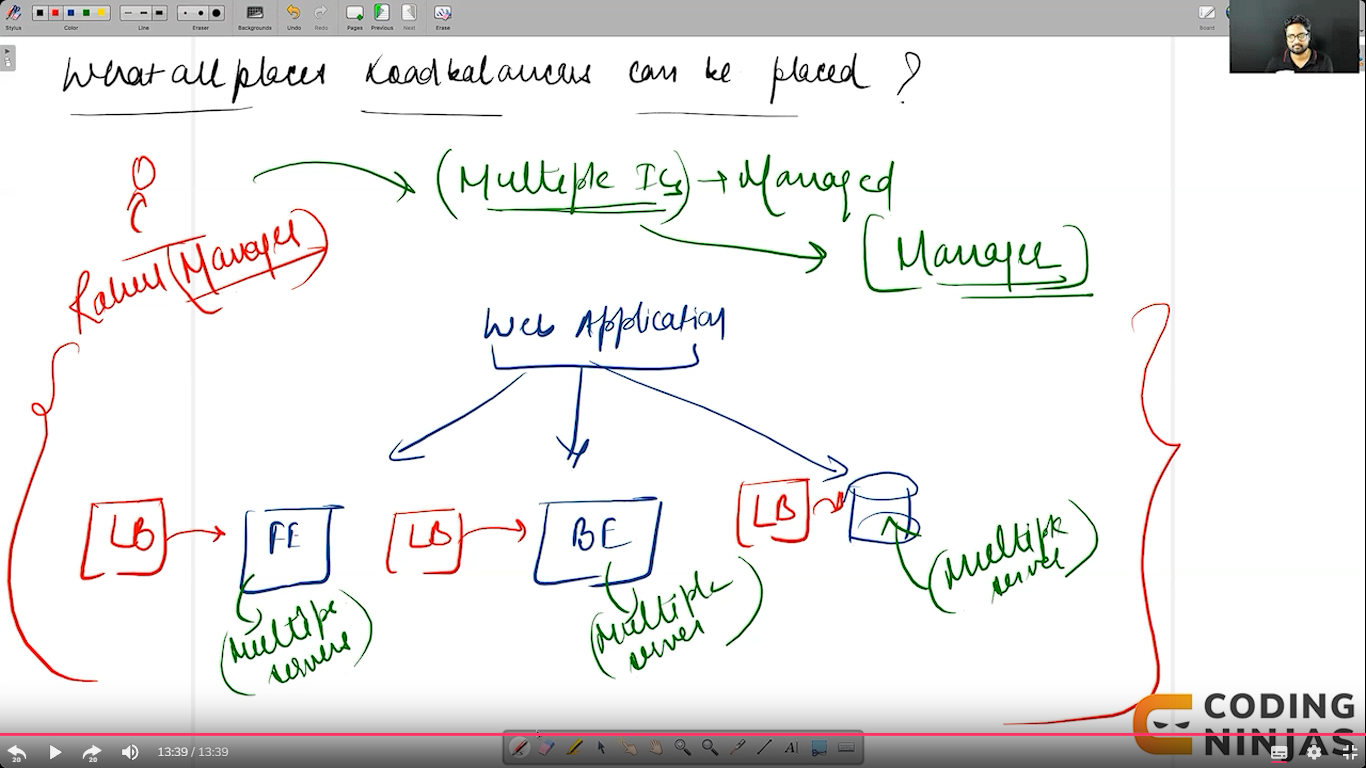 Stylus
Color
Line
Eraser
Backgrounds
Undo
Redo
Pages
Previous
Next
Erase
Board
What all places Loadbalancers can be placed ?
(Multiple ICs) → Managed
[Manager]
(Manager)
Web Application
LB
FE
LB
BE
LB
(Multiple servers)
(Multiple server)
(Multiple server)
CODING
NINJAS
20
20
13:39 / 13:39
A